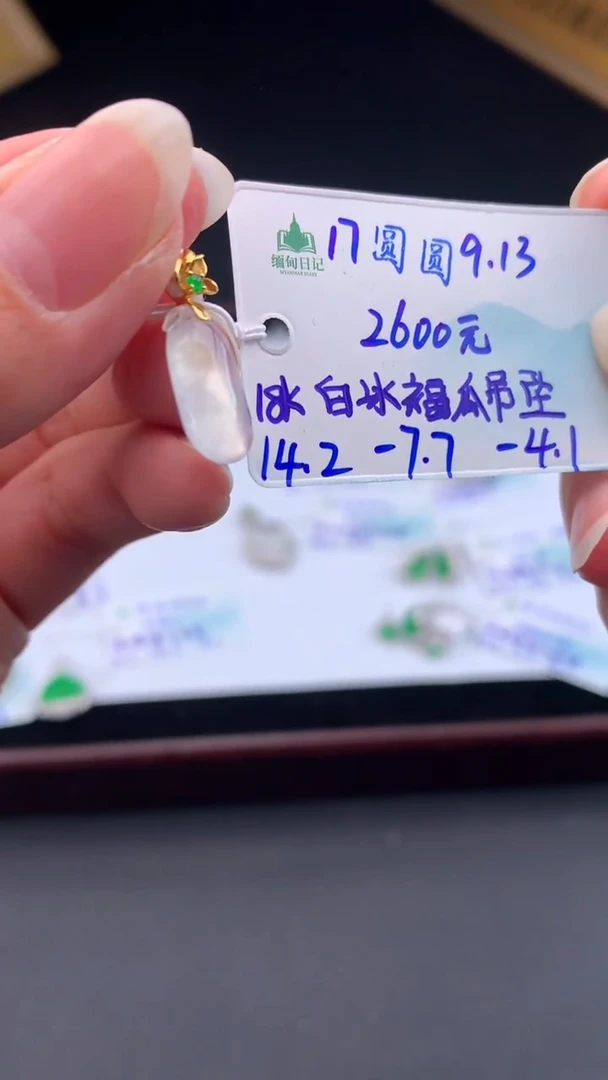 17 圆圆9.13
缅甸日记
2600元
18K 白冰福瓜吊坠
14.2 -7.7 -4.1